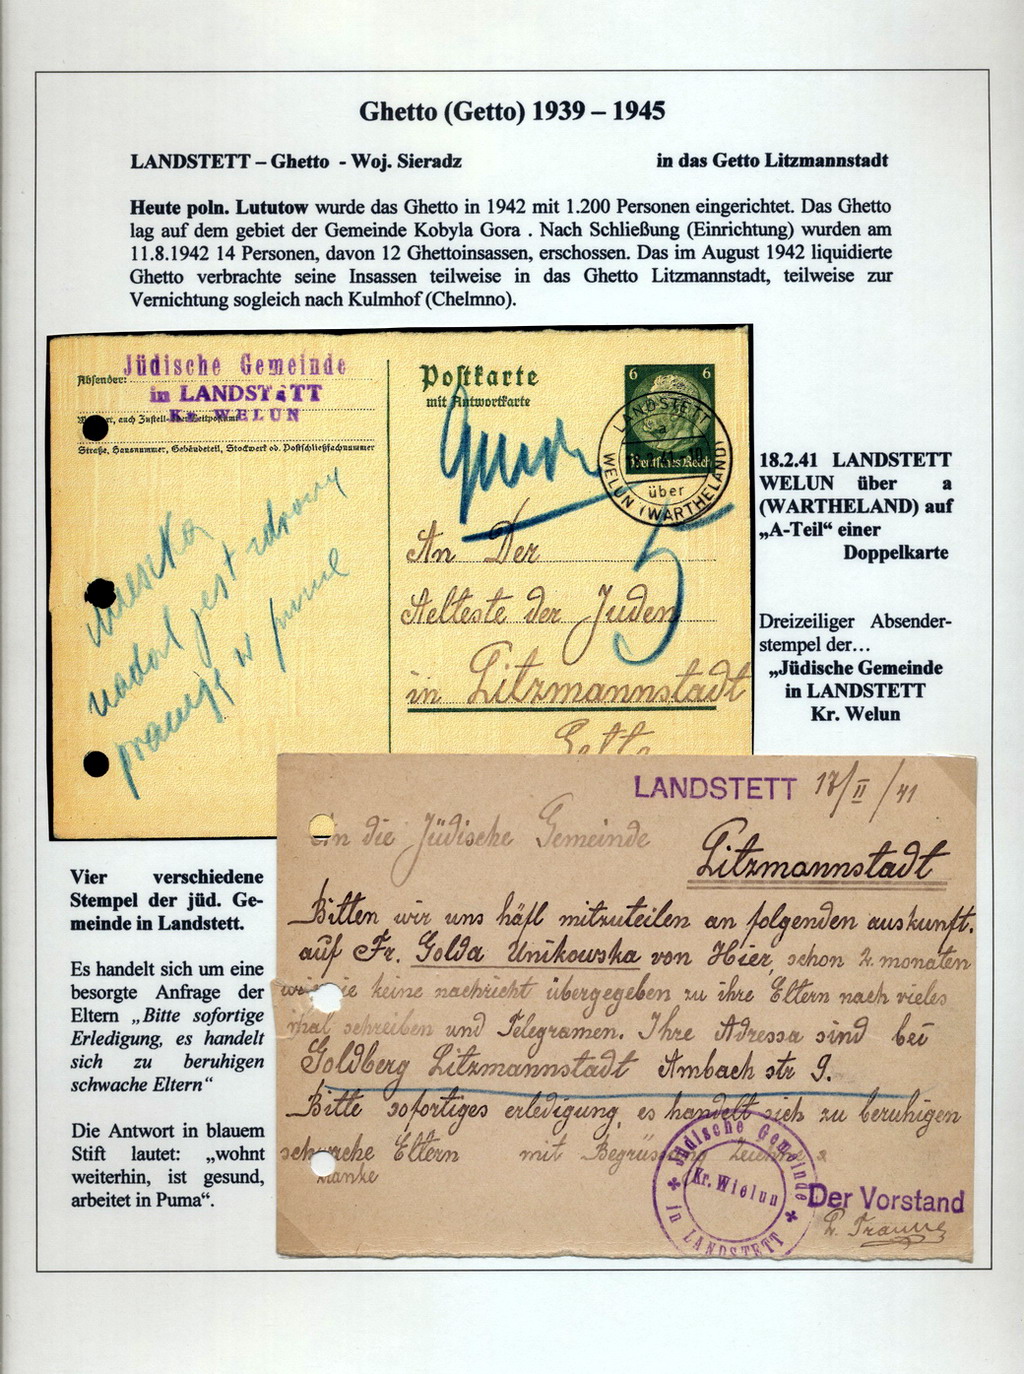 Ghetto (Getto) 1939 – 1945
LANDSTETT – Ghetto - Woj. Sieradz in das Getto Litzmannstadt
Heute poln. Lututow wurde das Ghetto in 1942 mit 1.200 Personen eingerichtet. Das Ghetto
lag auf dem gebiet der Gemeinde Kobyla Gora . Nach Schließung (Einrichtung) wurden am
11.8.1942 14 Personen, davon 12 Ghettoinsassen, erschossen. Das im August 1942 liquidierte
Ghetto verbrachte seine Insassen teilweise in das Ghetto Litzmannstadt, teilweise zur
Vernichtung sogleich nach Kulmhof (Chelmno).
Jüdische Gemeinde
Absender:
in LANDSTETT
Kr. WELUN
Straße, Hausnummer, Gebäudeteil, Stockwerk od. Postschließfachnummer
mieszka
nadal jest zdrowy
pracuje w
Postkarte
mit Antwortkarte
6 6
Deutsches Reich
LANDSTETT
a
über
WELUN (WARTHELAND)
5
An Der
Aelteste der Juden
in Litzmannstadt
Getto
18.2.41 LANDSTETT
WELUN über a
(WARTHELAND) auf
„A-Teil“ einer
Doppelkarte
Dreizeiliger Absender-
stempel der…
„Jüdische Gemeinde
in LANDSTETT
Kr. Welun
Vier verschiedene
Stempel der jüd. Ge-
meinde in Landstett.
Es handelt sich um eine
besorgte Anfrage der
Eltern „Bitte sofortige
Erledigung, es handelt
sich zu beruhigen
schwache Eltern“
Die Antwort in blauem
Stift lautet: „wohnt
weiterhin, ist gesund,
arbeitet in Puma“.
LANDSTETT 17/II/41
An die Jüdische Gemeinde
Litzmannstadt
Bitten wir uns häfl mitzuteilen an folgenden auskunft.
auf Fr. Golda Unikowska von Hier, schon 2 monaten
sie keine nachricht übergegeben zu ihre Eltern nach vieles
mal schreiben und Telegramen. Ihre Adressa sind bei
Goldberg Litzmannstadt Ambach str 9.
Bitte sofortiges erledigung, es handelt sich zu beruhigen
schwache Eltern mit Begrüssung
Danke
Jüdische Gemeinde
Kr. Wielun
in LANDSTETT
Der Vorstand